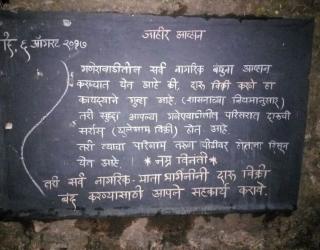 जाहीर आव्हान
दि. ६ ऑगस्ट २०१७
गणेशवाडीतील सर्व नागरिक बंधुना आव्हान
करण्यात येत आहे की, दारु विक्री करणे हा
कायद्याने गुन्हा आहे. (शासनाच्या नियमानुसार)
तरी सुद्धा आपल्या गणेशवाडीतील परिसरात दारुची
सर्रास (खुलेआम विक्री) होत आहे
तरी त्याचा परिणाम तरुण पीढीवर होताना दिसून
येत आहे। * नम्र विनंती *
तरी सर्व नागरिक-माता भगिनींनी दारु विक्री
बंद करण्यासाठी आपले सहकार्य करावे.